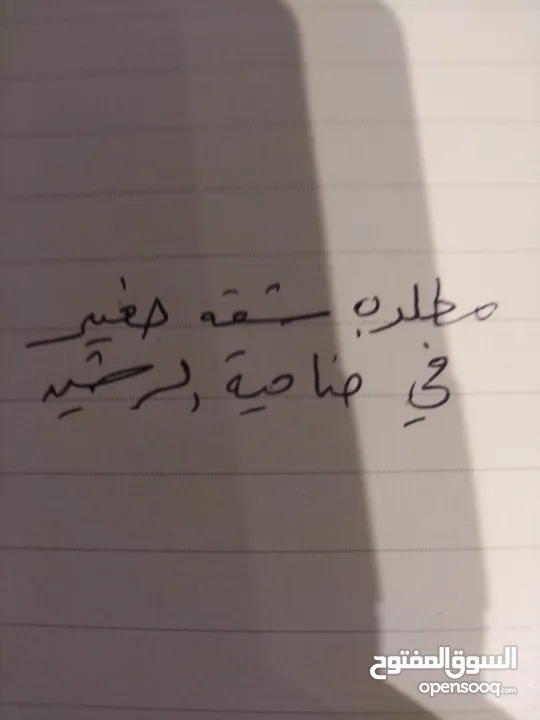 مطلوب شقه صغير
في ضاحية الرشيد
السوق المفتوح
opensooq.com